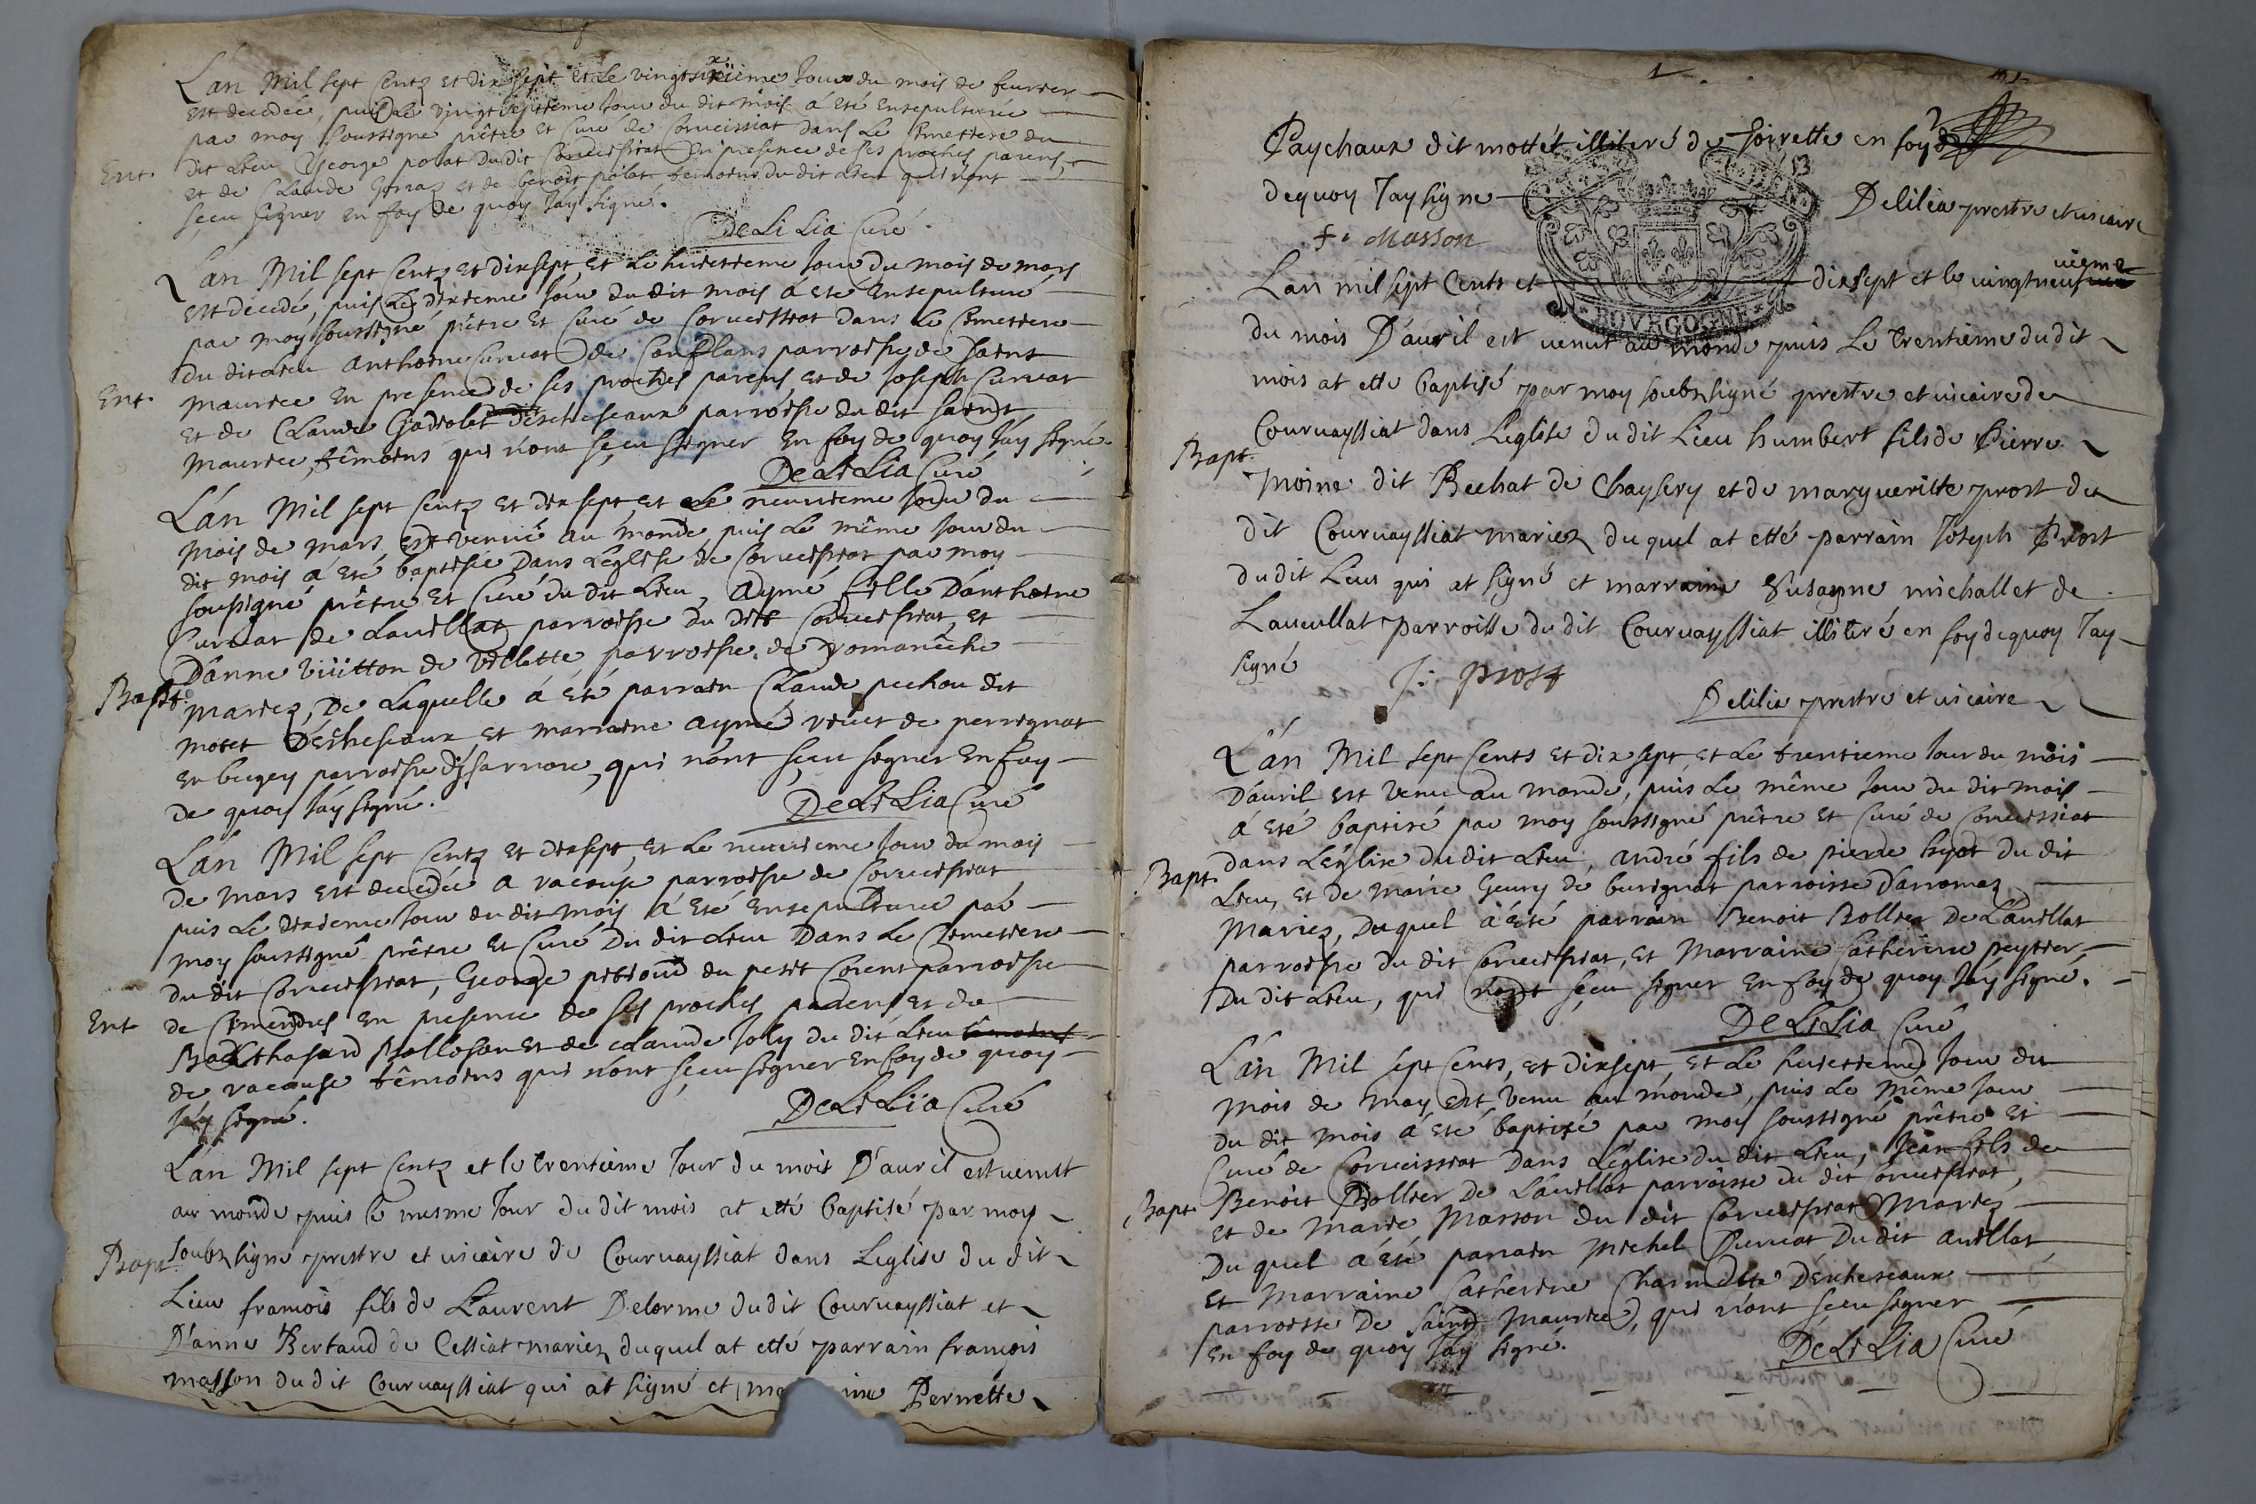 L'an Mil sept Centz et dix sept et le vingtsixième Jour du mois de feurier
est decedée, puis le vingtseptieme Jour du dit mois á eté ensepulturée
par moy soussigné prêtre et Curé de Corueissiat dans le Cimettiere du
Ent. dit Lieu George polat du dit Corueissiat en presence de ses proches parens,
et de Claude et de benoit polat temoins du dit Lieu qui n'ont
sceu signer en foy de quoy Jay signé.
De Li Lia Curé
L'an Mil sept Centz et dixsept, et le huictieme Jour du mois de mars
est décedé, puis le dixieme Jour du dit mois á eté ensepulturé
par moy soussigné prêtre et Curé de Corueissiat dans le Cimettiere
du dit Lieu anthoine Curuat de Conflans parroisse de saint
Ent. maurice en presence de ses proches parens, et de Joseph Curuat
et de Claude Gadiolet d'escheseaux parroisse du dit saint
Maurice, têmoins qui n'ont sceu signer en foy de quoy Jáy signé.
De Li Lia Curé
L'án Mil sept Centz et dixsept, et le neuuieme Jour du
mois de mars, est venue au monde, puis le même Jour du
dit mois á eté baptisée dans Leglise de Corueissiat par moy
soussigné prêtre et Curé du dit Lieu, Aymé fille D'anthoine
Curuat de Lauellat parroisse du dit Corueissiat, et
D'anne Vüitton de Villette parroisse de romanêche
Bapt. Mariez, De Laquelle á eté parrain Claude pechou dit
motet D'escheseaux et marraine aymé vieut de perrignat
en bugey parroisse d'jsarnore, qui n'ont sceu signer En foy
de quoy Jáy signé.
De Li Lia Curé
L'án Mil sept Centz et dixsept, et Le neuuieme Jour du mois
de Mars est decedée a racouse parroisse de Corueissiat
puis Le dixieme Jour du dit mois á eté ensepulturée par
moy soussigné prêtre et Curé du dit Lieu Dans Le Cimettiere
du dit Corueissiat, George du petit Corent parroisse
de Cimendres en presence de ses proches parens et de
Ent Balthasard et de claude Joly du dit Lieu
de racouse têmoins qui n'ont sceu signer en foy de quoy
Jáy signé.
De Li Lia Curé
L'án Mil sept Centz et le trentième Jour du mois D'auril est venut
au monde puis le mesme Jour du dit mois at etté baptisé par moy
Bapt. soubzsigné prestre et uicaire de Couruayssiat dans Leglise du dit
Lieu framois fils de Laurent Delorme du dit Couruayssiat et
D'anne Bertaud de Cessiat mariez duquel at etté parrain framois
masson du dit Couruayssiat qui at signé et Pernette
Paychaux dit mottét illiteré de en foy de
dequoy Jay signe Delilia prestre et uicaire
f. Masson
BOVRGOGNE
L'an mil sept Cents et dixsept et le vingtneufuieme
du mois D'auril est uenut au monde puis Le trentième du dit
mois at etté baptisé par moy soubzsigné prestre et uicaire de
Couruayssiat dans Leglise du dit Lieu humbert fils de Pierre
Bapt. moine dit Bechat de Chaysery et de margueritte prost du
dit Couruayssiat mariez duquel at etté parrain Joseph Prost
du dit Lieu qui at signé et marraine Susanne michallet de
Laueullat parroisse du dit Couruayssiat illiteré en foy dequoy Jay
signé J: prost
Delilia prestre et uicaire
L'án Mil sept Cents et dix sept, et Le trentieme Jour du mois
D'auril est venu au monde, puis Le même Jour du dit mois
á eté baptisé par moy soussigné prêtre et Curé de Corueissiat
Bapt. dans L'église du dit Lieu, andré fils de pierre du dit
Lieu, et de Marie Geury de burignat parroisse D'arromaz
Mariez, Duquel á eté parrain Benoit Bollier De Lauellat
parroisse du dit Corueissiat, et Marraine Catherine peytier
Du dit Lieu, qui n'ont sceu signer En foy de quoy Jáy signé.
De Li Lia Curé
L'án Mil sept Cents, et dixsept, et le huictieme Jour du
mois de may est venu au monde, puis Le même Jour
du dit mois á eté baptizé par moy soussigné prêtre et
Curé de Corueissiat Dans L'église du dit Lieu, Jean fils de
Bapt. Benoit Bollier De Lauellat parroisse du dit Corueissiat,
et de Marie Masson du dit Corueissiat Mariez
Du quel á eté parrain Michel Curuat Du dit auellat
et Marraine Catherine Charmette D'escheseaux
parroisse De saint Maurice, qui n'ont sceu signer
en foy de quoy Jáy signé.
De Li Lia Curé